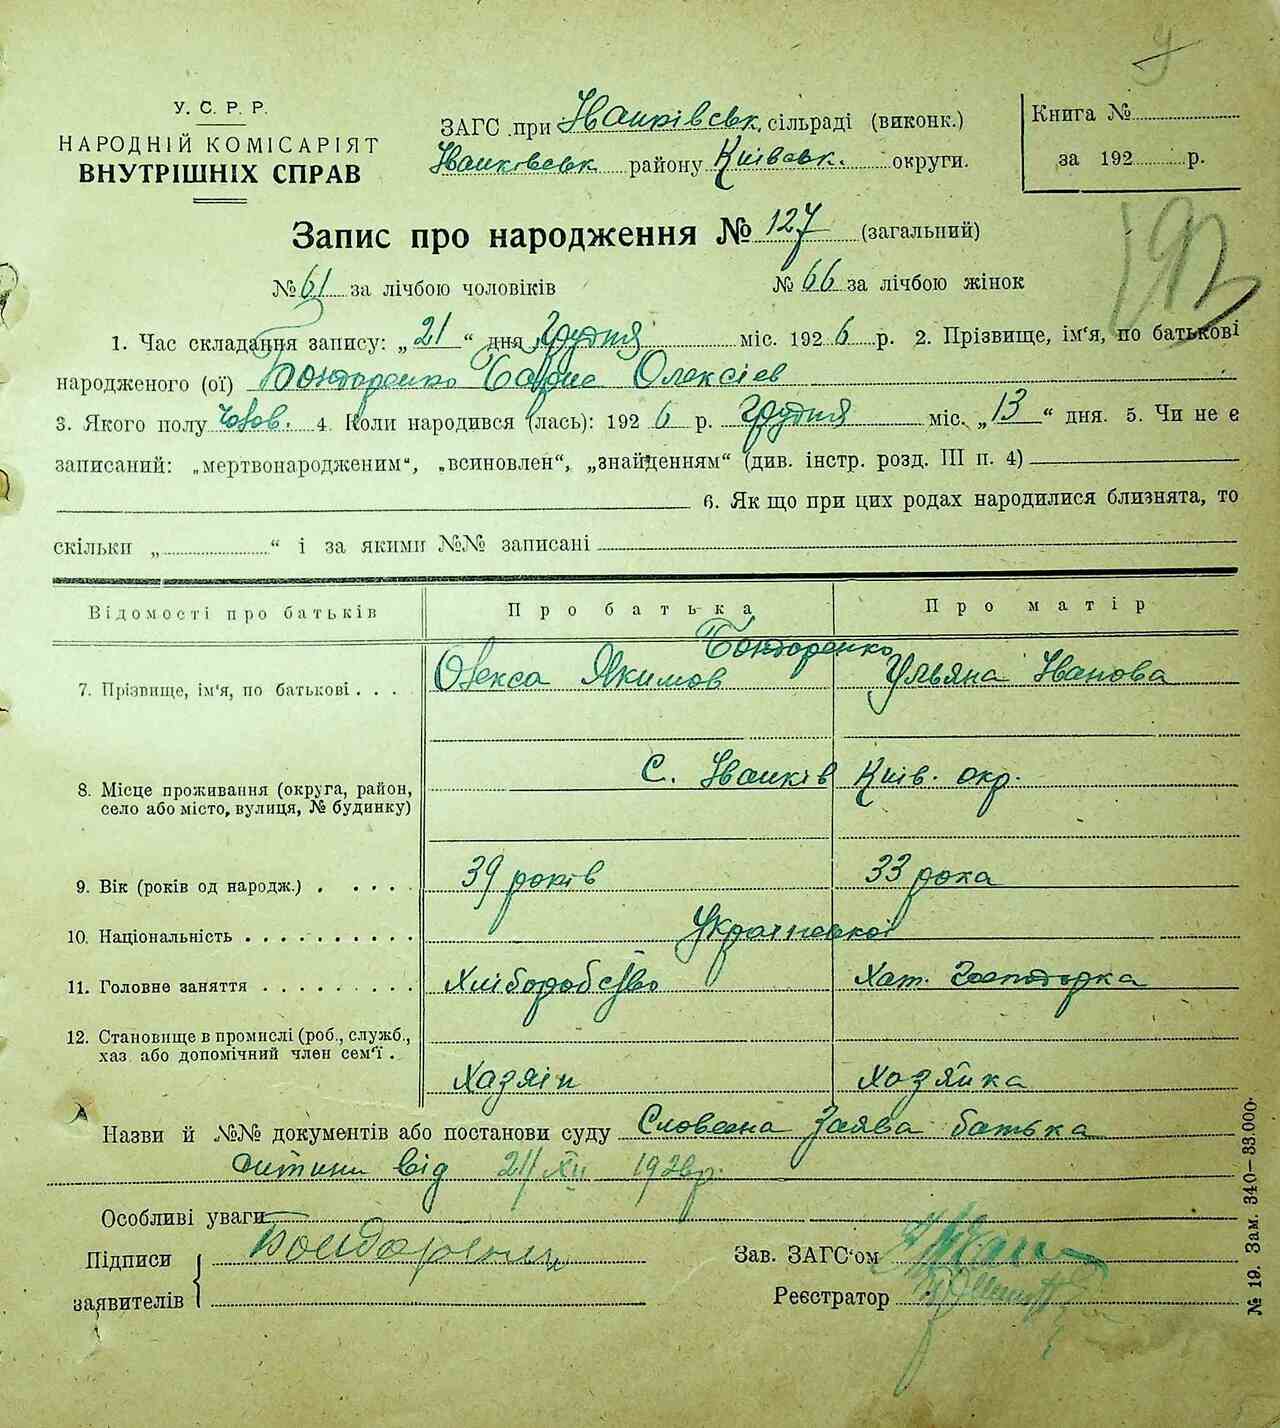 У. С. Р. Р.
НАРОДНІЙ КОМІСАРІЯТ
ВНУТРІШНІХ СПРАВ
ЗАГС при Іванківськ. сільраді (виконк.)
Іванковськ районну Київськ. округи.
Книга №
за 192 р.
Запис про народження № 127 (загальний)
№ 61 за лічбою чоловіків № 66 за лічбою жінок
1. Час складання запису: „21“ дня Грудня міс. 1926 р. 2. Прізвище, ім‘я, по батькові
народженого (ої) Бондаренко Борис Олексієв
3. Якого полу Чолов. 4. Коли народився (лась): 1926 р. Грудня міс. „13“ дня. 5. Чи не є
записаний: „мертвонародженим“, „всиновлен“, „знайденням“ (див. інстр. розд. III п. 4)
6. Як що при цих родах народилися близнята, то
скільки „ “ і за якими №№ записані
Відомості про батьків Про батька Про матір
Бондаренко
7. Прізвище, ім‘я, по батькові . . . Олекса Якимов Ульяна Іванова
8. Місце проживання (округа, район, С. Іванків Київ. окр.
село або місто, вулиця, № будинку)
9. Вік (років од народж.) . . . . . 39 років 33 рока
10. Національність . . . . . . . . . . Української
11. Головне заняття . . . . . . . . . Хліборобство Хат. Господарка
12. Становище в промислі (роб., служб.,
хаз або допомічний член сем‘ї .
Хазяін Хозяйка
Назви й №№ документів або постанови суду Словесна Заява батька
дитини від 21/XII 1926р.
Особливі уваги
Підписи Бондаренко Зав. ЗАГС‘ом
заявителів Реєстратор
№ 19. Зам. 340—33.000.
193